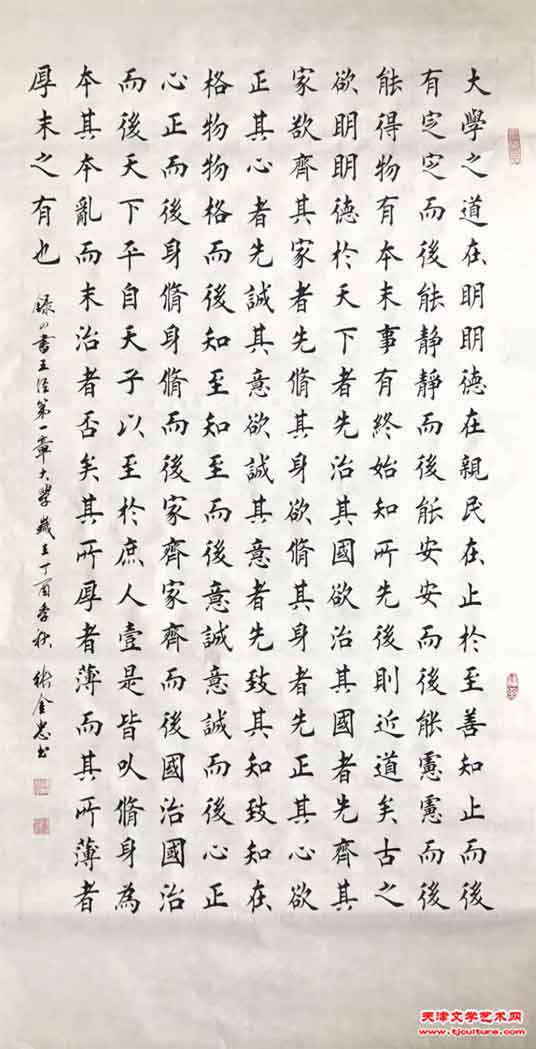 大學之道在明明德在親民在止於至善知止而後
有定定而後能靜靜而後能安安而後能慮慮而後
能得物有本末事有終始知所先後則近道矣古之
欲明明德於天下者先治其國欲治其國者先齊其
家欲齊其家者先脩其身欲脩其身者先正其心欲
正其心者先誠其意欲誠其意者先致其知致知在
格物物格而後知至知至而後意誠意誠而後心正
心正而後身脩身脩而後家齊家齊而後國治國治
而後天下平自天子以至於庶人壹是皆以脩身為
本其本亂而末治者否矣其所厚者薄而其所薄者
厚未之有也
錄四書五经第一章大學歲在丁酉季秋 金忠书
天津文学艺术网
www.tjculture.com